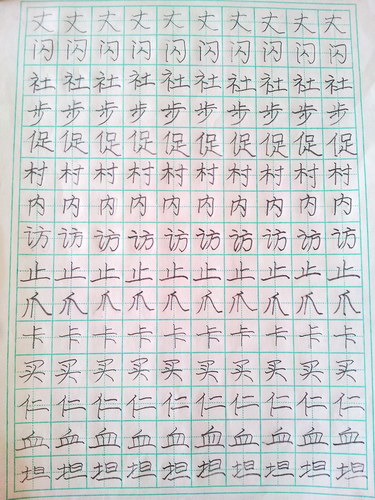 丈丈丈丈丈丈丈丈丈丈
闪闪闪闪闪闪闪闪闪闪
社社社社社社社社社社
步步步步步步步步步步
促促促促促促促促促促
村村村村村村村村村村
内内内内内内内内内内
访访访访访访访访访访
止止止止止止止止止止
爪爪爪爪爪爪爪爪爪爪
卡卡卡卡卡卡卡卡卡卡
买买买买买买买买买买
仁仁仁仁仁仁仁仁仁仁
血血血血血血血血血血
坦坦坦坦坦坦坦坦坦坦